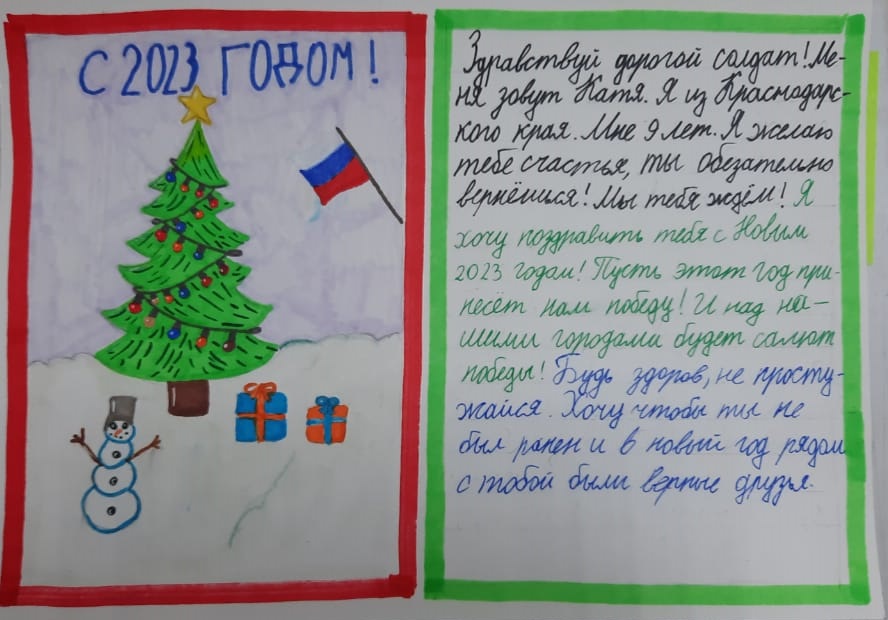 С 2023 ГОДОМ!
Здравствуй дорогой солдат! Ме-
ня зовут Катя. Я из Краснодарс-
кого края. Мне 9 лет. Я желаю
тебе счастья, ты обезательно
вернёшься! Мы тебя ждём! Я
хочу поздравить тебя с Новым
2023 годом! Пусть этот год при-
несёт нам победу! И над на-
шими городами будет салют
победы! Будь здоров, не просту-
жайся. Хочу чтобы ты не
был ранен и в новый год рядом
с тобой были верные друзья.